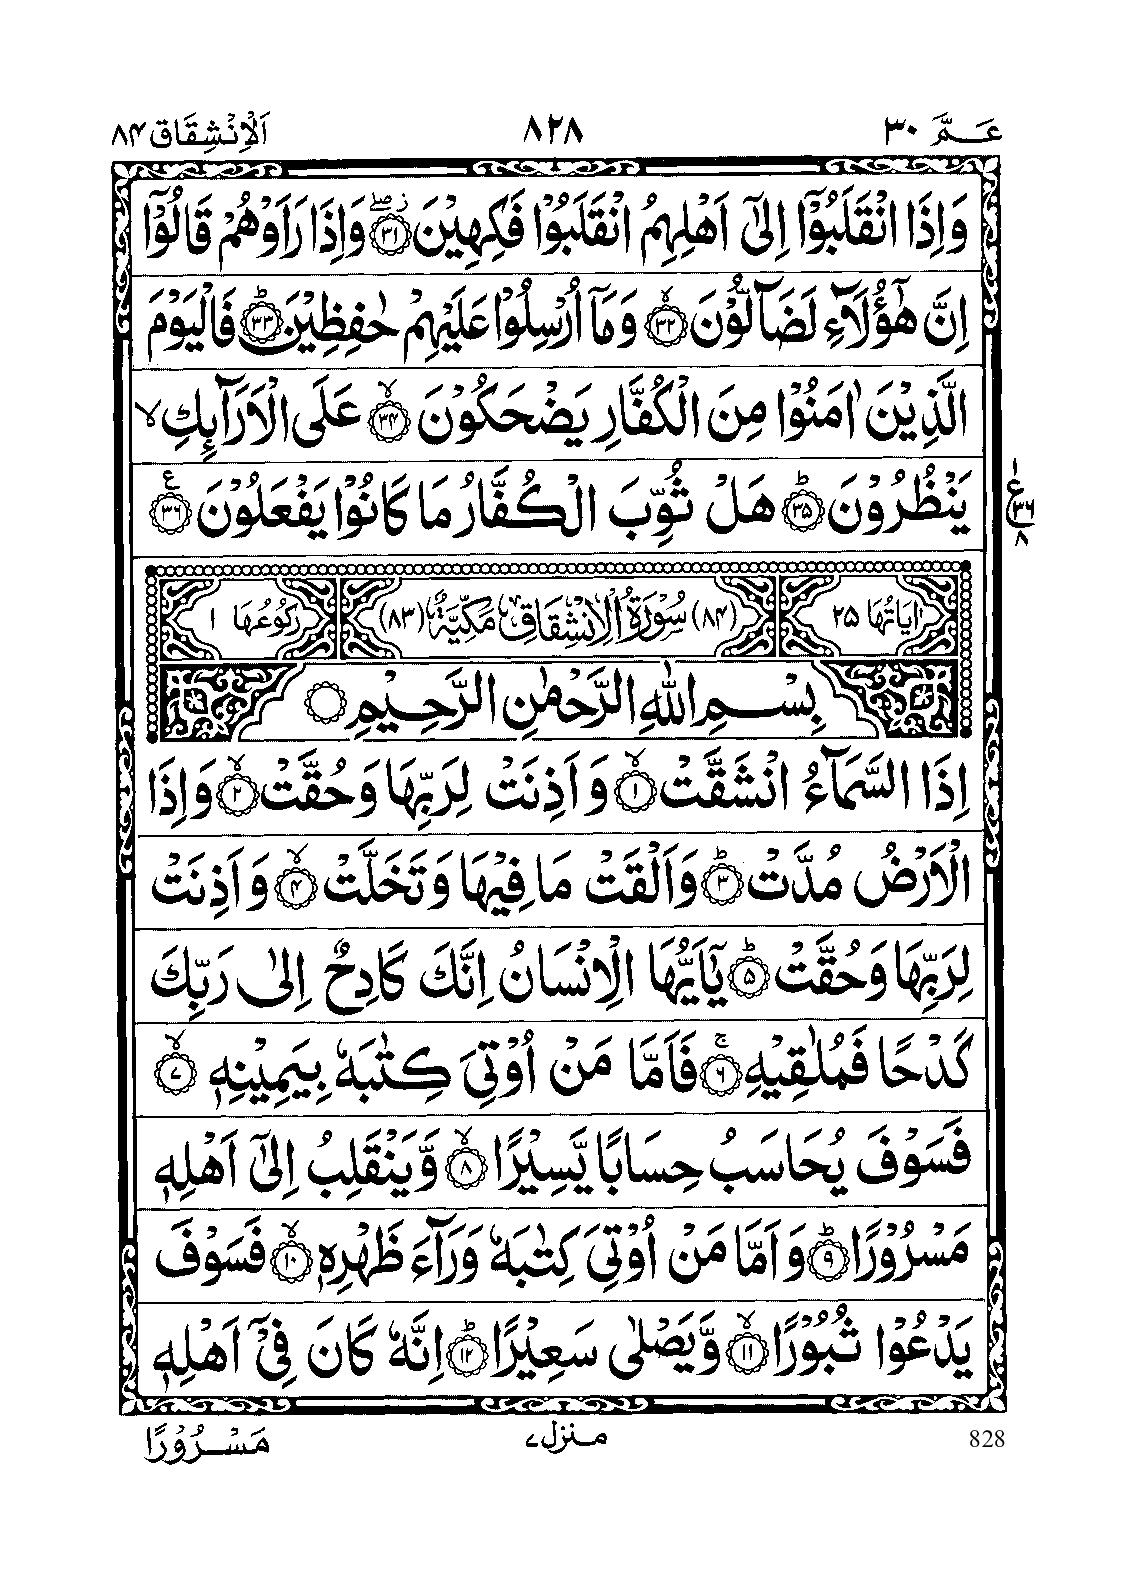 عَمَّ ٣٠ ٨٢٨ اَلْاِنْشِقَاق ٨٤
وَاِذَا انْقَلَبُوْۤا اِلٰۤى اَهْلِهِمُ انْقَلَبُوْا فَكِهِيْنَ ۖ ز ﴿٣١﴾ وَاِذَا رَاَوْهُمْ قَالُوْۤا
اِنَّ هٰۤؤُلَآءِ لَضَآلُّوْنَ ۙ ﴿٣٢﴾ وَمَاۤ اُرْسِلُوْا عَلَيْهِمْ حٰفِظِيْنَ ؕ ﴿٣٣﴾ فَالْيَوْمَ
الَّذِيْنَ اٰمَنُوْا مِنَ الْكُفَّارِ يَضْحَكُوْنَ ۙ ﴿٣٤﴾ عَلَى الْاَرَآىِٕكِ ۙ
يَنْظُرُوْنَ ؕ ﴿٣٥﴾ هَلْ ثُوِّبَ الْكُفَّارُ مَا كَانُوْا يَفْعَلُوْنَ ع ﴿٣٦﴾
١ ع ٣٦ ٨
اٰيَاتُهَا ٢٥ (٨٤) سُوْرَةُ الْاِنْشِقَاقِ مَكِّيَّةٌ (٨٣) رُكُوْعُهَا ١
بِسْمِ اللّٰهِ الرَّحْمٰنِ الرَّحِيْمِ
اِذَا السَّمَآءُ انْشَقَّتْ ۙ ﴿١﴾ وَاَذِنَتْ لِرَبِّهَا وَحُقَّتْ ۙ ﴿٢﴾ وَاِذَا
الْاَرْضُ مُدَّتْ ؕ ﴿٣﴾ وَاَلْقَتْ مَا فِيْهَا وَتَخَلَّتْ ۙ ﴿٤﴾ وَاَذِنَتْ
لِرَبِّهَا وَحُقَّتْ ؕ ﴿٥﴾ يٰۤاَيُّهَا الْاِنْسَانُ اِنَّكَ كَادِحٌ اِلٰى رَبِّكَ
كَدْحًا فَمُلٰقِيْهِ ۚ ﴿٦﴾ فَاَمَّا مَنْ اُوْتِيَ كِتٰبَهٗ بِيَمِيْنِهٖ ۙ ﴿٧﴾
فَسَوْفَ يُحَاسَبُ حِسَابًا يَّسِيْرًا ۙ ﴿٨﴾ وَّيَنْقَلِبُ اِلٰۤى اَهْلِهٖ
مَسْرُوْرًا ؕ ﴿٩﴾ وَاَمَّا مَنْ اُوْتِيَ كِتٰبَهٗ وَرَآءَ ظَهْرِهٖ ۙ ﴿١٠﴾ فَسَوْفَ
يَدْعُوْا ثُبُوْرًا ۙ ﴿١١﴾ وَّيَصْلٰى سَعِيْرًا ؕ ﴿١٢﴾ اِنَّهٗ كَانَ فِيْۤ اَهْلِهٖ
828 منزل ٧ مَسْرُوْرًا